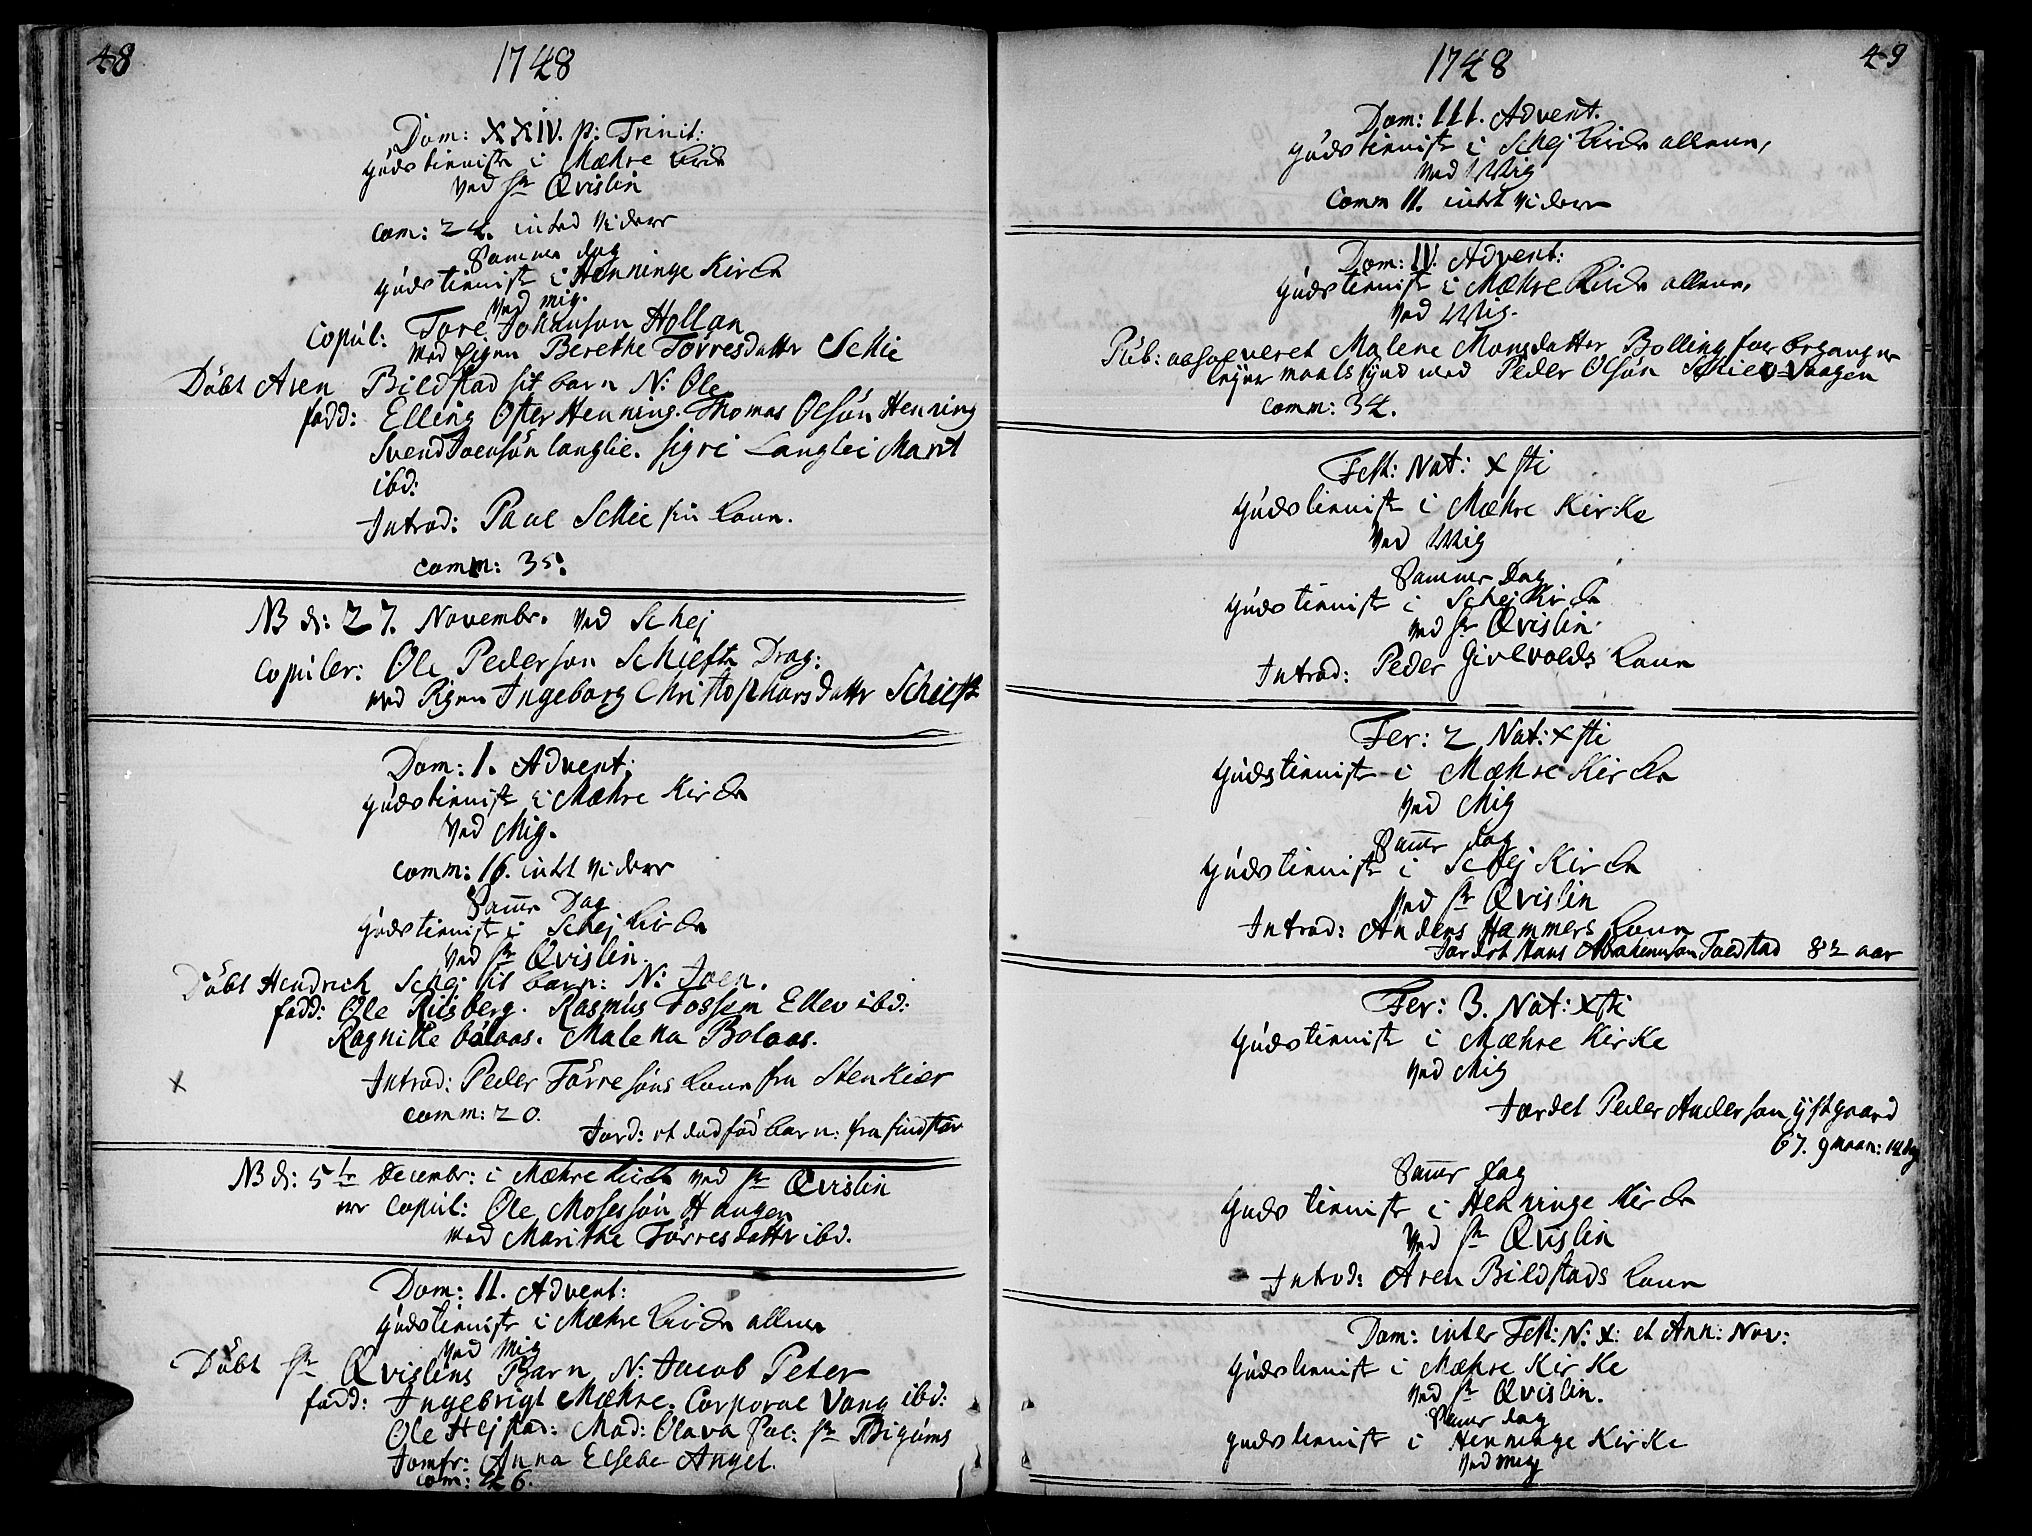 48
1748
Dom: XXIV. p: Trinit:
Gudstienist i Mæhre Kirche
Ved Hr Qvislin
Com: 24. inted videre
Samme dag
Gudstienist i Henninge Kirche
Ved mig.
Copul: Tore Johanson Hollan
Med Pigen Berethe Torresdatter Schie
Döbt Aren Bildstad sit barn N: Ole
fadd: Elling Ofter Henning. Thomas Olsön Henning
Svend Joensön langlie. Sigri Langlei Marit
ibd:
Introd: Paul Schie sin kone.
comm: 35.
NB d: 27. Novembr. ved Schej
Copuler: Ole Pederson Schiefte Drag:
med Pigen Ingeborg Christophorsdatter Schiefte
Dom: 1. Advent:
Gudstienist i Mæhre Kirche
Ved Mig.
comm: 16. intet videre
Samme Dag
Gudstienist i Schej Kirche
Ved Hr Qvislin.
Döbt Hendrich Schej sit barn: N: Joen.
fadd: Ole Riisberg. Rasmus Fossem Ellev ibd:
Ragnille bölaas. Malena Bolaas.
x
Introd: Peder Törresöns kone fra Stenkier
comm: 20.
Jord: et dødfød barn: fra
NB d: 5te Decembr: i Mæhre Kirche ved Hr Qvislin
Copul: Ole Mosessön Haugen
Med Marithe Törresdatter ibd.
Dom: 11. Advent:
Gudstienist i Mæhre Kirche allene
Ved Mig
Döbt Hr Qvislins Barn N: Jacob Peter
fadd: Ingebrigt Mæhre. Corporal Vang ibd:
Ole Hejstad: Mad: Olava Sal: Hr Bigums
Jomfr: Anna Elsebe Angel.
com: 46.
1748
49
Dom: 111. Advent.
Gudstienist i Schej Kirche allene,
Ved Mig
Comm 11. intet videre
Dom: IV. Advent:
Gudstienist i Mæhre Kirche allene,
Ved Mig.
Pub: absolveret Malene Monsdatter Bolling for begangen
leyermaals synd med Peder Olsön Vaagen
comm: 34.
Fest: Nat: Xsti
Gudstienist i Mæhre Kirke
Ved Mig
Samme Dag
Gudstienist i Schej Kirche
ved Hr Qvislin.
Introd: Peder Girlvolds kone
Fer: 2 Nat: Xsti
Gudstienist i Mæhre Kirche
Ved Mig
Samme dag
Gudstienist i Schej Kirche
Ved Hr Qvislin
Introd: Anders Hammers kone
Jordet Hans Abrahamson Toldstad 82 aar
Fer: 3. Nat: Xsti
Gudstienist i Mæhre Kirke
Ved Mig
Jordet Peder Anderson ystgaard
67. 9 maan: 14 dg
Samme dag
Gudstienist i Henninge Kirche
Ved Hr Qvislin
Introd: Aren Bildstads kone
Dom: inter Fest: N: X: et Ann: Nov:
Gudstienist i Mæhre Kirke
Ved Hr Qvislin.
Samme dag
Gudstienist i Henninge Kirke
Ved mig